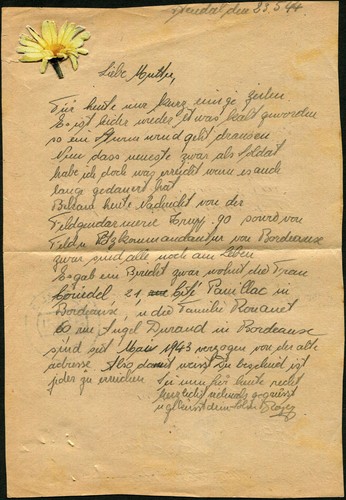 den 23.5.44
Liebe Mutter,
Für heute nur kurz einige zeilen
Es ist leider wieder etwas kalt geworden
so ein Sturm wind geht draussen
Nun dass neueste zwar als Soldat
habe ich doch was erreicht wenn es auch
lang gedauert hat
Bekam heute Nachricht von der
Feldgendarmerie Trupp 90 sowie von
Feldn Ortzkommandantur von Bordeause
zwar sind alle noch am Leben
Es gab ein Bericht zwar wohnt die Frau
21 Cité Pauillac in
Bordeause, u die Familie Rouanet
60 rue Angel Durand in Bordeause
sind seit März 1943 verzogen von der alte
adresse Also damit weisst Du Ergebnis ist
jedes zu erreichen Sei nun für heute recht
herzlichst nochmals gegrüsst
u geküsst dein Sohn Roger